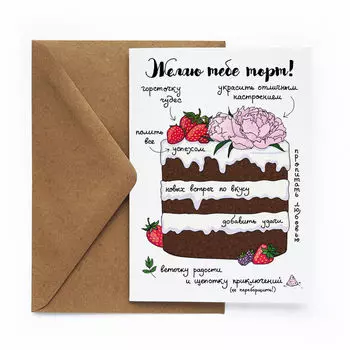 Желаю тебе торт!
горсточку
чудес
украсить отличным
настроением
полить
все
успехом
новых встреч по вкусу
добавить удачи
пропитать любовью
веточку радости
и щепотку приключений
(не переборщить!)